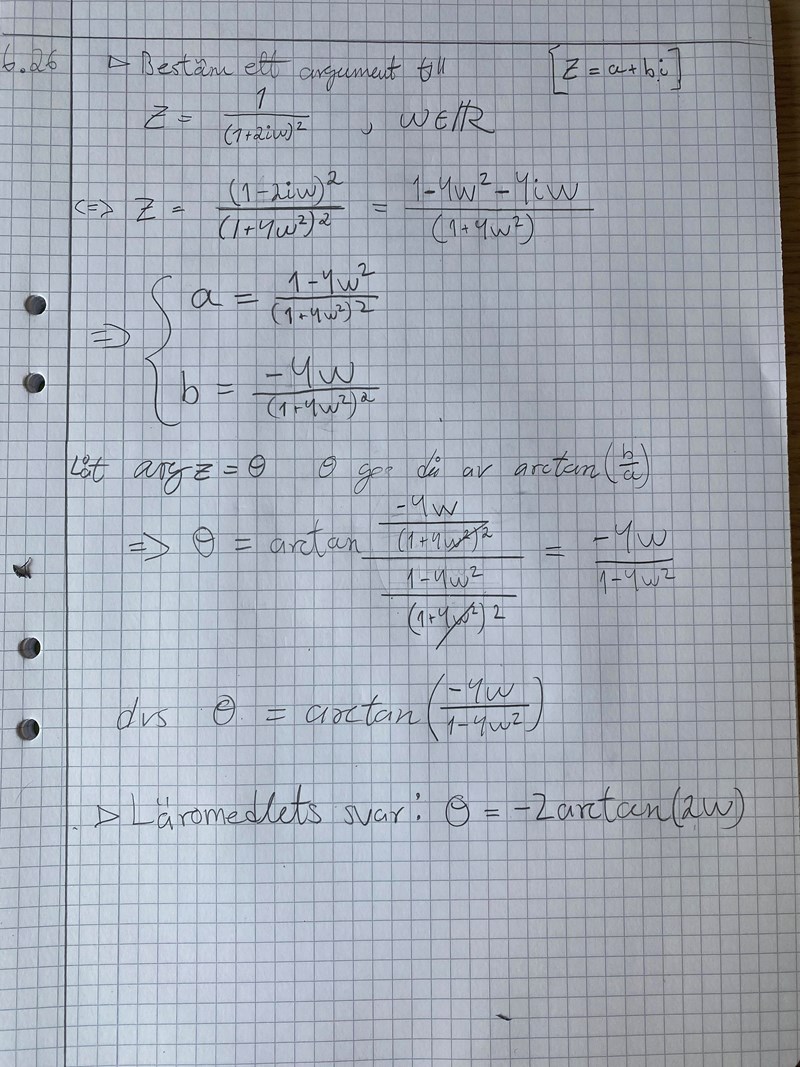 6.26 ▷ Bestäm ett argument till [z = a+bi]
z = 1/(1+2iw)², w∈ℝ
<=> z = (1-2iw)²/(1+4w²)² = 1-4w²-4iw/(1+4w²)
=> { a = 1-4w²/(1+4w²)²
b = -4w/(1+4w²)²
Låt arg z = θ θ ges då av arctan(b/a)
=> θ = arctan -4w/(1+4w²)² / 1-4w²/(1+4w²)² = -4w/1-4w²
dvs θ = arctan(-4w/1-4w²)
▷ Läromedlets svar: θ = -2arctan(2w)